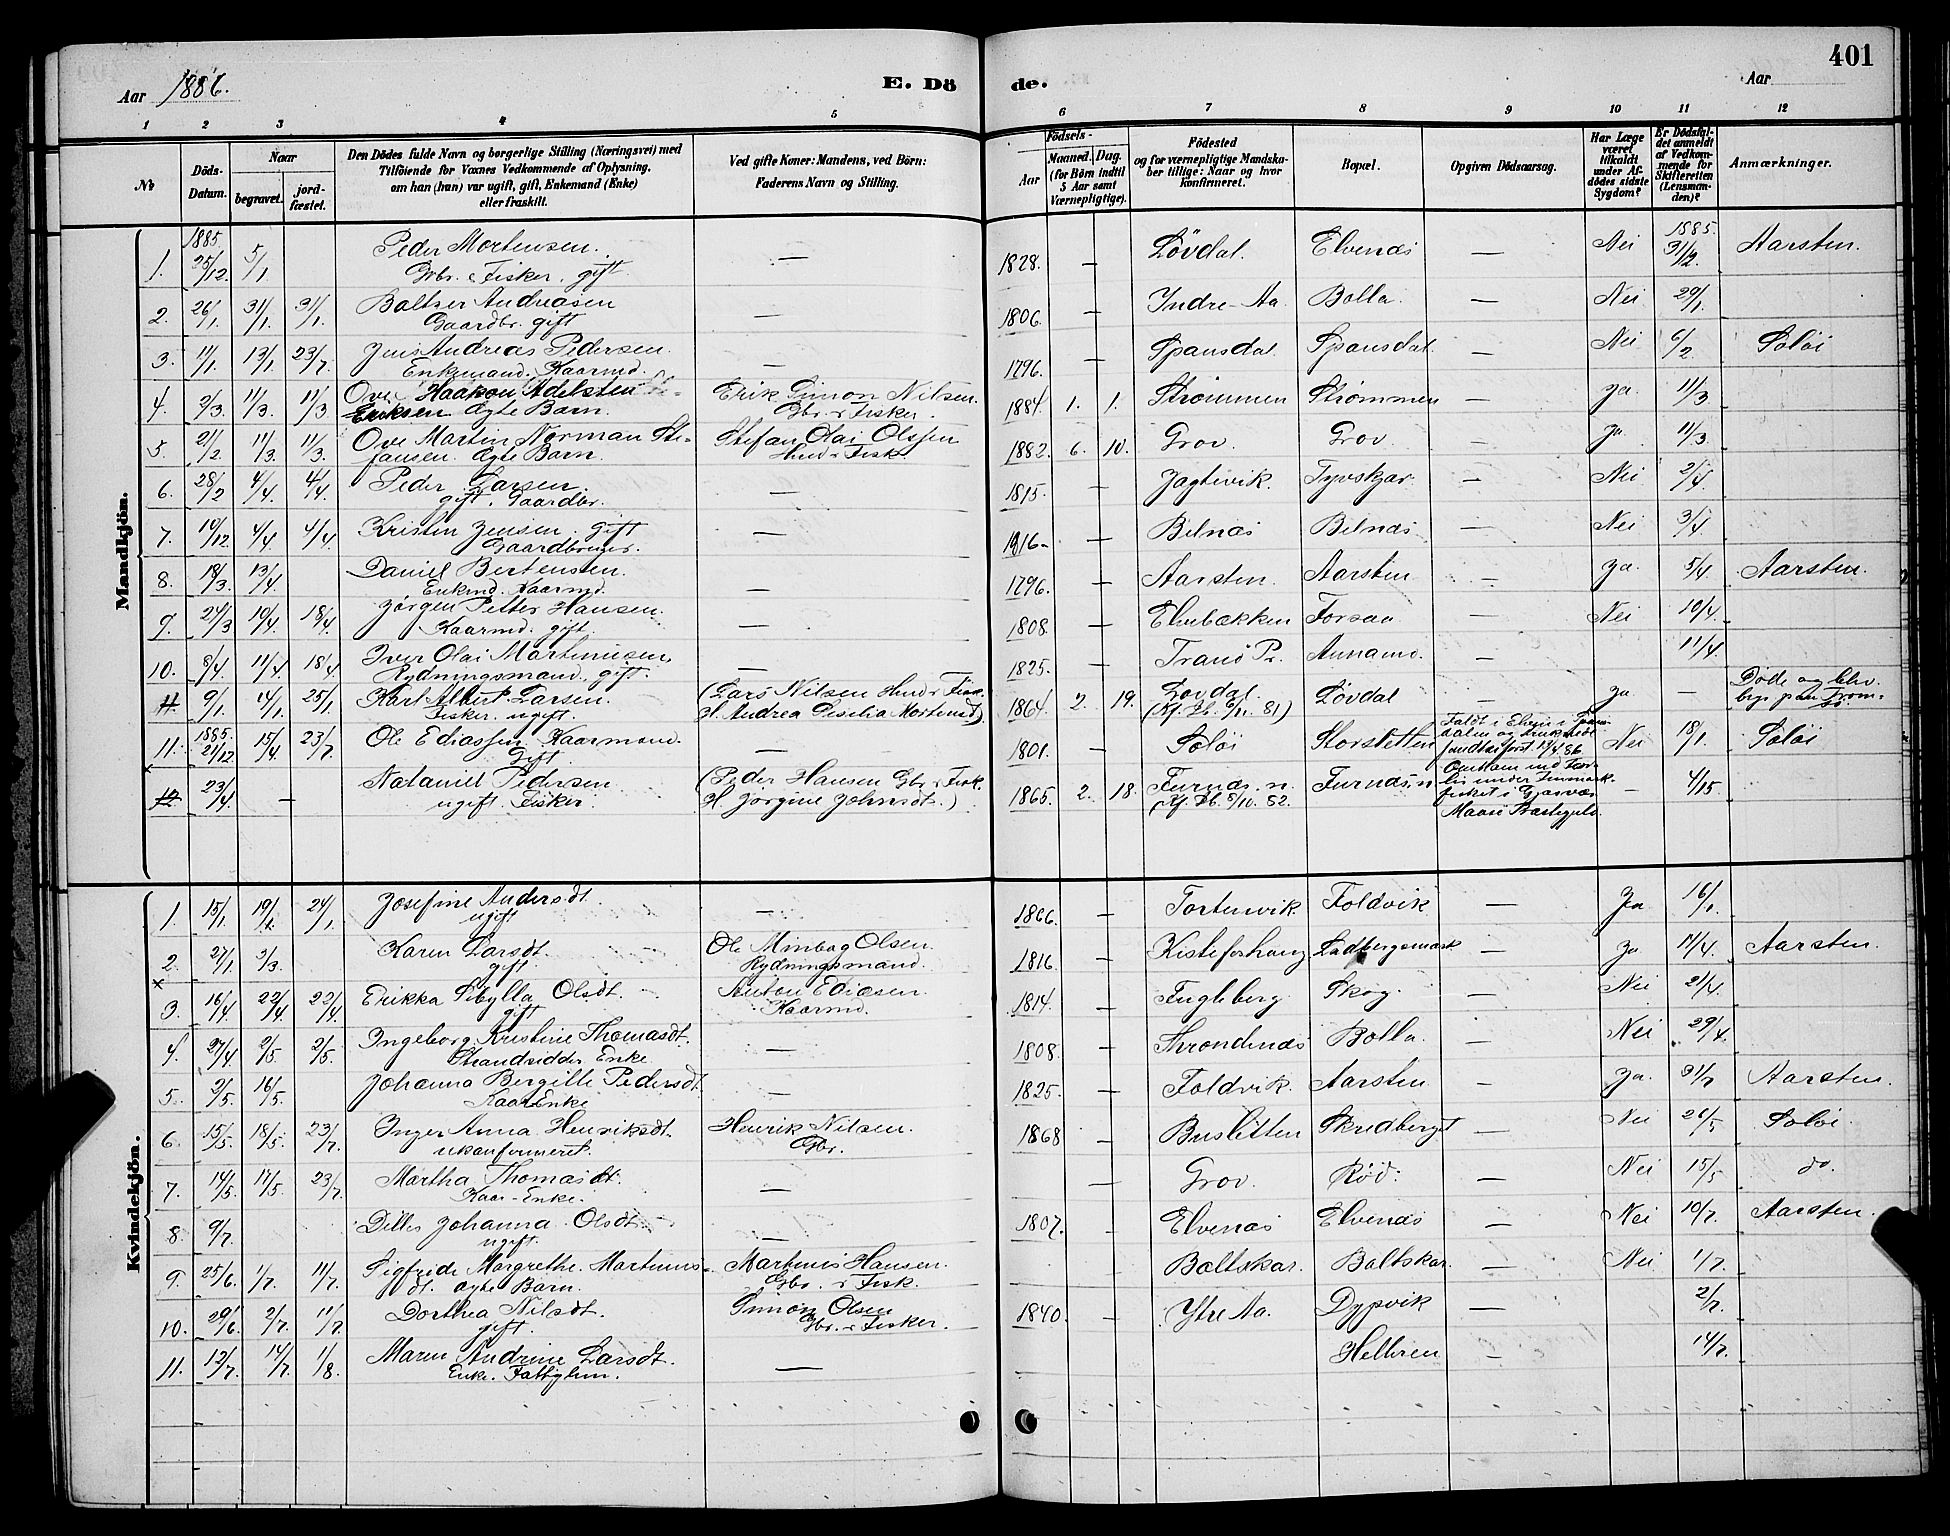 401
Aar 1886.
E. Dö
de.
Aar
1 2 3 4 5 6 7 8 9 10 11 12
No
Döds-Datum.
Naar
begravet.
jord-fæstet.
Den Dödes fulde Navn og borgerlige Stilling (Næringsvei) med
Tilföiende for Voxnes Vedkommende af Oplysning,
om han (hun) var ugift, gift, Enkemand (Enke)
eller fraskilt.
Ved gifte Koner: Mandens, ved Börn:
Faderens Navn og Stilling.
Födsels-
Aar
Maaned. Dag.
(for Börn indtil
5 Aar samt
Værnepligtige).
Födested
og for værnepligtige Mandska-
ber tillige: Naar og hvor
konfirmeret.
Bopæl.
Opgiven Dödsaarsag.
Har Læge
været
tilkaldt
under Af-
dödes sidste
Sygdom?
Er Dödsfal-
det anmeldt
af Vedkom-
mende for
Skifteretten
(Lensman-
den)?
Anmærkninger.
Mandkjön.
1. 1885. 25/12. 5/1 Peder Mortensen. — 1828. — Lövdal. Elvenæs — Nei 1885. 31/12. Aarsten.
Gbr. & Fisker. gift.
2. 26/1. 31/1. 31/1. Baltzer Andreasen — 1806. — Indre-Aa. Bolla. — Nei 29/1.
Gaardbr. gift
3. 11/1. 13/1. 23/7. Jens Andreas Pedersen. — 1796. Spansdal. Spansdal. — Nei 6/2 Soløi
Enkemand. Kaarmd.
4. 2/3. 11/3. 11/3 Ove Haakon Adelsten Erik Simon Nilsen. 1884. 1. 1. Strømmen Strømmen — Ja. 11/3
Eriksen Ægte Barn. Gbr. & Fisker.
5. 21/2 11/3. 11/3. Ove Martin Norman Ste- Stefan Olai Olsen 1882. 6. 10. Grov. Grov. — Ja. 11/3.
fansen. Ægte Barn. Fisk.
6. 28/2 4/4. 4/4. Peder Larsen. — 1815. — Jagtvik. Tyvskjær. — Nei 2/4
gift. Gaardbr.
7. 19/12 4/4. 4/4 Kristen Jensen. gift — 1816 — Belnæs Belnæs. — Nei. 3/4
Gaardbruger.
8. 18/3 13/4. Daniel Bertensen. — 1796. — Aarsten. Aarsten — Ja. 5/4 Aarsten.
Enkmd. Kaarmd.
9. 24/3 10/4. 18/4 Jørgen Petter Hansen. — 1808. — Elvebakken Forsaa — Nei 10/4.
Kaarmd. gift.
10. 8/4. 11/4 18/4 Iver Olai Martinusen — 1825. — Tranö Pr. — 11/4.
Rydningsmand, gift.
11. 9/1. 14/1. 25/1. Karl Albert Larsen. (Lars Nilsen 1864. 2. 19. Lövdal. Lövdal — Ja — Døde og blev
Fisker. ugift. H. Andrea Cecilia Mortensd.) 81) Trom-
11. 1885. 21/12. 15/4 23/7. Ole Ediassen Kaarmand. — 1801. — Soløi Storsletten Nei 18/1. Soløi
Gift.
12 23/4 — Nataniel Pedersen (Peder Hansen Gbr. & Fisk. 1865. 2. 18. Furnæs. n. Furnæs. n — 4/15
ugift Fisker. H. Jørgine Johnsdt.) under Finmark-
fisket i Gjæsvær
Maasö Præstegjeld.
Kvindekjön.
1. 15/1. 19/1. 24/1. Josefine Andersdt. — 1866. — Fortenvik. Foldvik — Ja 16/1.
ugift
2. 27/1. 3/3. Karen Larsdt. Ole Olsen. 1816. — — Ja 14/4. Aarsten.
gift. Rydningsmand.
× 3. 16/4 22/4 22/4. Erikka Sibylla Olsdt. Anton Ediasen. 1814. — Fugleberg. Skog. — Nei 21/4.
gift Kaarmd.
4. 27/4 2/5. 2/5. Ingeborg Kristine Thomasdt. — 1808. — Throndenæs Bolla. — Nei 29/4.
Strandsidder Enke
5. 2/5. 16/5. Johanna Bergitte Pedersdt — 1825. — Foldvik. Aarsten — Ja. 31/7 Aarsten.
KaarEnke
6. 15/5. 18/5. 23/7. Inger Anna Henriksdt. Henrik Nilsen. 1868 — Busletten — Nei 26/5 Soløi.
ukonfirmeret. Gbr.
7. 14/5. 17/5. 23/7 Martha Thomasdt. — — Grov. Rød. — Nei 15/5 do.
Kaar-Enke.
8. 9/7. Johanna Olsdt. — 1807. — Elvenæs Elvenæs — Nei 10/7. Aarsten.
ugift.
9. 25/6. 1/7. 11/7. Sigfride Margrethe Martinus- Martinus Hansen. Baltskar. Baltskar. — Nei 1/7.
dt. ægte Barn. Gbr. & Fisk.
10. 29/6 2/7 11/7. Dorthea Nilsdt. Simon Olsen 1840. — Ytre Aa. Dypvik — 2/7.
gift. Gbr. & Fisker.
11. 12/7 14/7. 1/8. Maren Andrine Larsdt. — Helleren — 14/7.
Enke. Fattiglem.